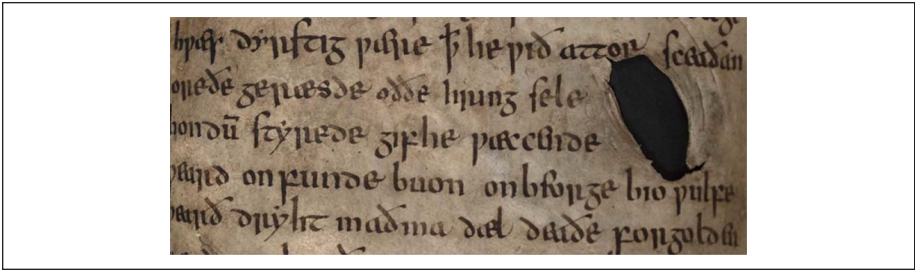 hƿæs dyrstig ƿære ꝥ he ƿið attor sceaðan
oreðe geræsde oððe hring sele
hondū styrede gif he ƿæccende
ƿeard onfunde buon on beorge bio ƿulfe
ƿearð dryht maðma dæl deaðe forgolden